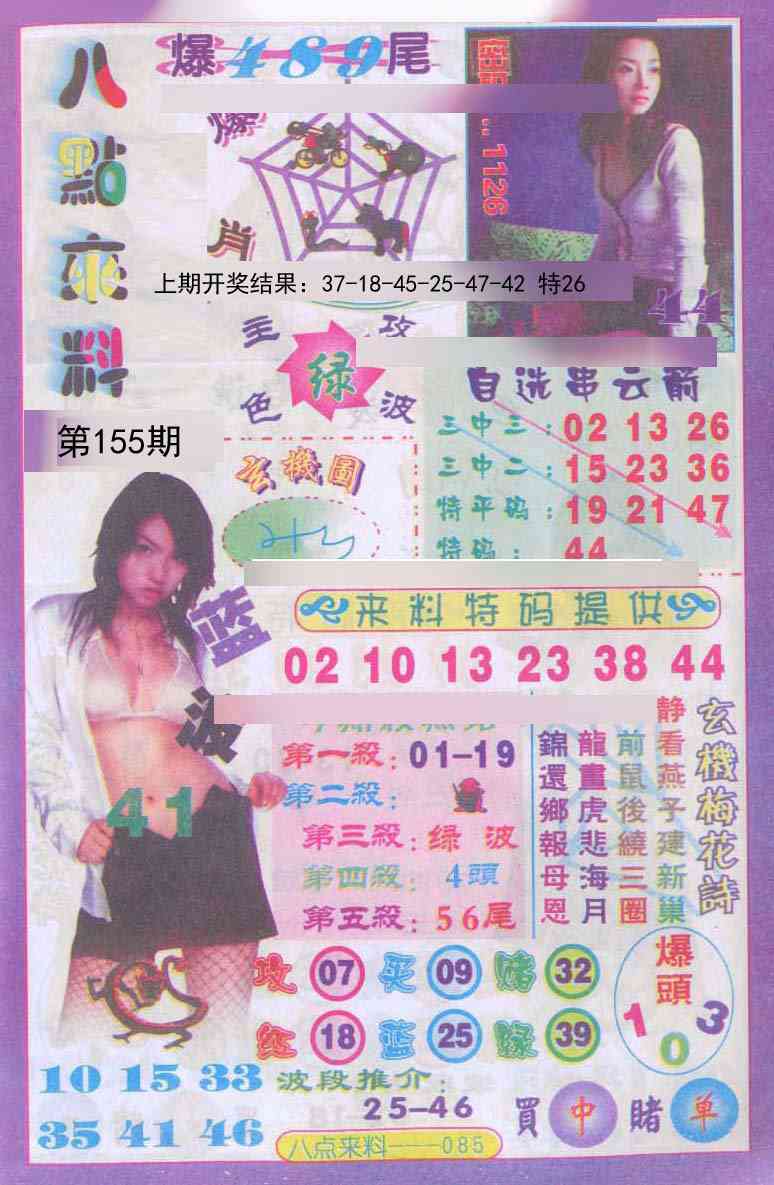 八點來料
爆489尾
爆肖
佳...1126
44
上期开奖结果：37-18-45-25-47-42 特26
主攻
绿
色波
第155期
玄機圖
自选串云箭
三中三：02 13 26
三中二：15 23 36
特平码：19 21 47
特码：44
来料特码提供
02 10 13 23 38 44
蓝波
41
第一殺：01-19
第二殺：
第三殺：绿 波
第四殺：4頭
第五殺：56尾
玄機梅花詩
静看燕子建新巢
前鼠後繞三圈
龍畫虎悲海月
錦還鄉報母恩
攻 07 买 09 赌 32
红 18 蓝 25 绿 39
爆頭
1 0 3
10 15 33
35 41 46
波段推介：
25-46
買 中 賭 单
八点来料——085